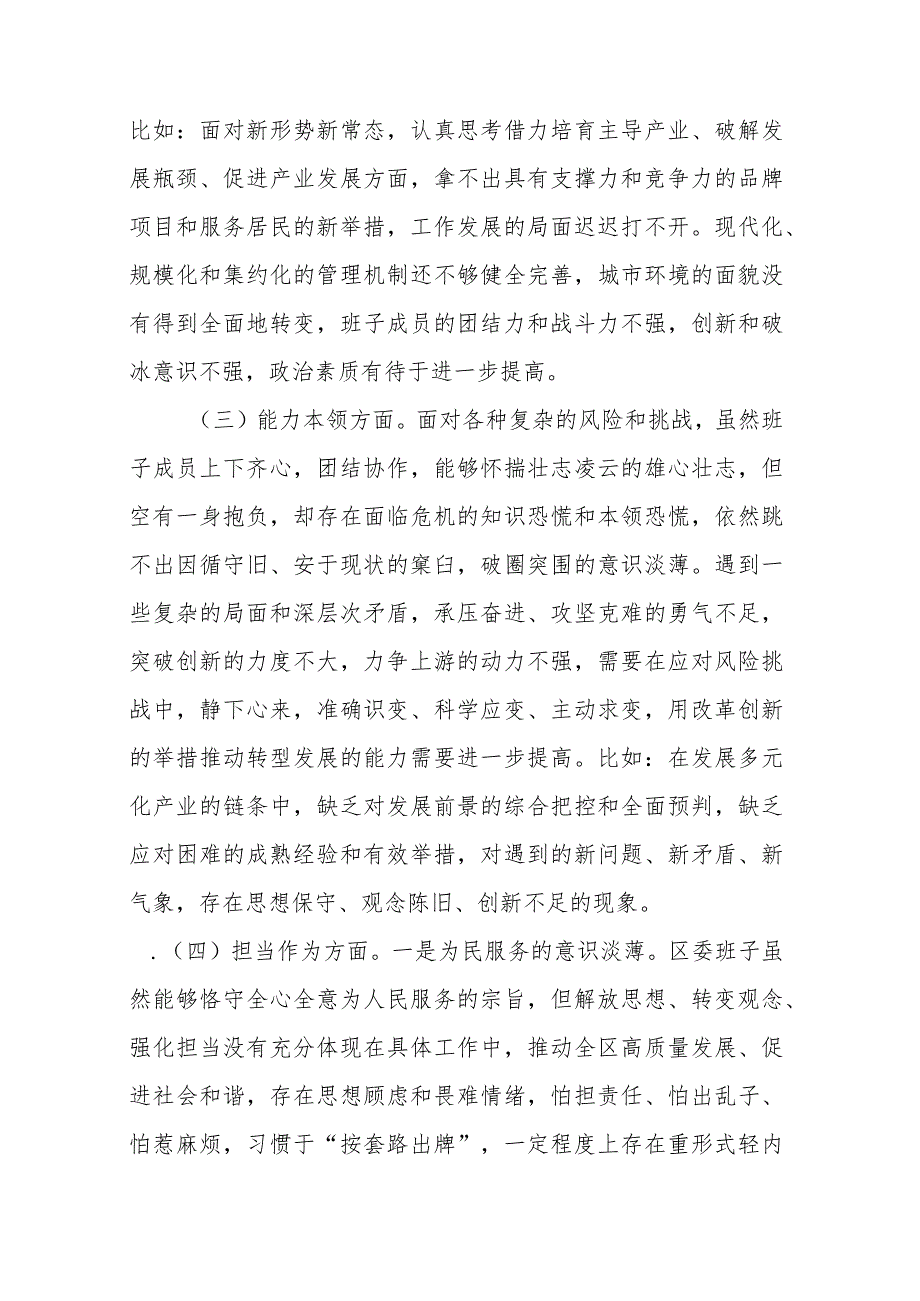 比如：面对新形势新常态，认真思考借力培育主导产业、破解发
展瓶颈、促进产业发展方面，拿不出具有支撑力和竞争力的品牌
项目和服务居民的新举措，工作发展的局面迟迟打不开。现代化、
规模化和集约化的管理机制还不够健全完善，城市环境的面貌没
有得到全面地转变，班子成员的团结力和战斗力不强，创新和破
冰意识不强，政治素质有待于进一步提高。
（三）能力本领方面。面对各种复杂的风险和挑战，虽然班
子成员上下齐心，团结协作，能够怀揣壮志凌云的雄心壮志，但
空有一身抱负，却存在面临危机的知识恐慌和本领恐慌，依然跳
不出因循守旧、安于现状的窠臼，破圈突围的意识淡薄。遇到一
些复杂的局面和深层次矛盾，承压奋进、攻坚克难的勇气不足，
突破创新的力度不大，力争上游的动力不强，需要在应对风险挑
战中，静下心来，准确识变、科学应变、主动求变，用改革创新
的举措推动转型发展的能力需要进一步提高。比如：在发展多元
化产业的链条中，缺乏对发展前景的综合把控和全面预判，缺乏
应对困难的成熟经验和有效举措，对遇到的新问题、新矛盾、新
气象，存在思想保守、观念陈旧、创新不足的现象。
.（四）担当作为方面。一是为民服务的意识淡薄。区委班子虽
然能够恪守全心全意为人民服务的宗旨，但解放思想、转变观念、
强化担当没有充分体现在具体工作中，推动全区高质量发展、促
进社会和谐，存在思想顾虑和畏难情绪，怕担责任、怕出乱子、
怕惹麻烦，习惯于“按套路出牌”，一定程度上存在重形式轻内